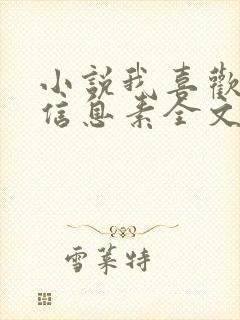 小説我喜歡
信息素全文
雪萊特